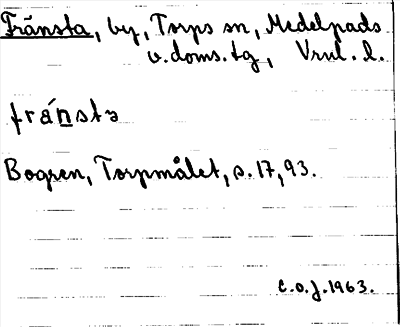 Fränsta, by, Torps sn, Medelpads
v. doms. tg, Vrnl. l.
fránstə
Bogren, Torpmålet, s. 17, 93.
C.O.J. 1963.